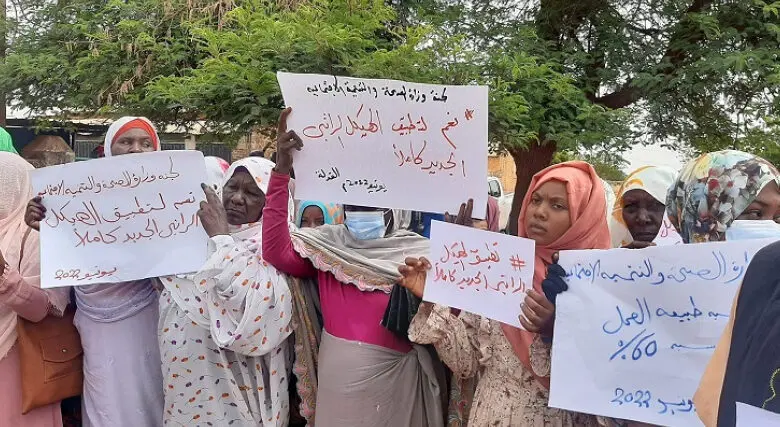 لجنة وزارة الصحة والتنمية الإجتماعيه
نعم لتطبيق الهيكل
الراتبي الجديد كاملاً
يونيو 2022
لجنة وزارة الصحة والتنمية الإجتماعيه
# نعم لتطبيق الهيكل الراتبي
الجديد كاملاً
يونيو 2022م
# تطبيق الهيكل
الراتبي الجديد كاملاً
وزارة الصحة والتنمية الاجتماعية
طبيعه العمل
60%
يونيو 2022